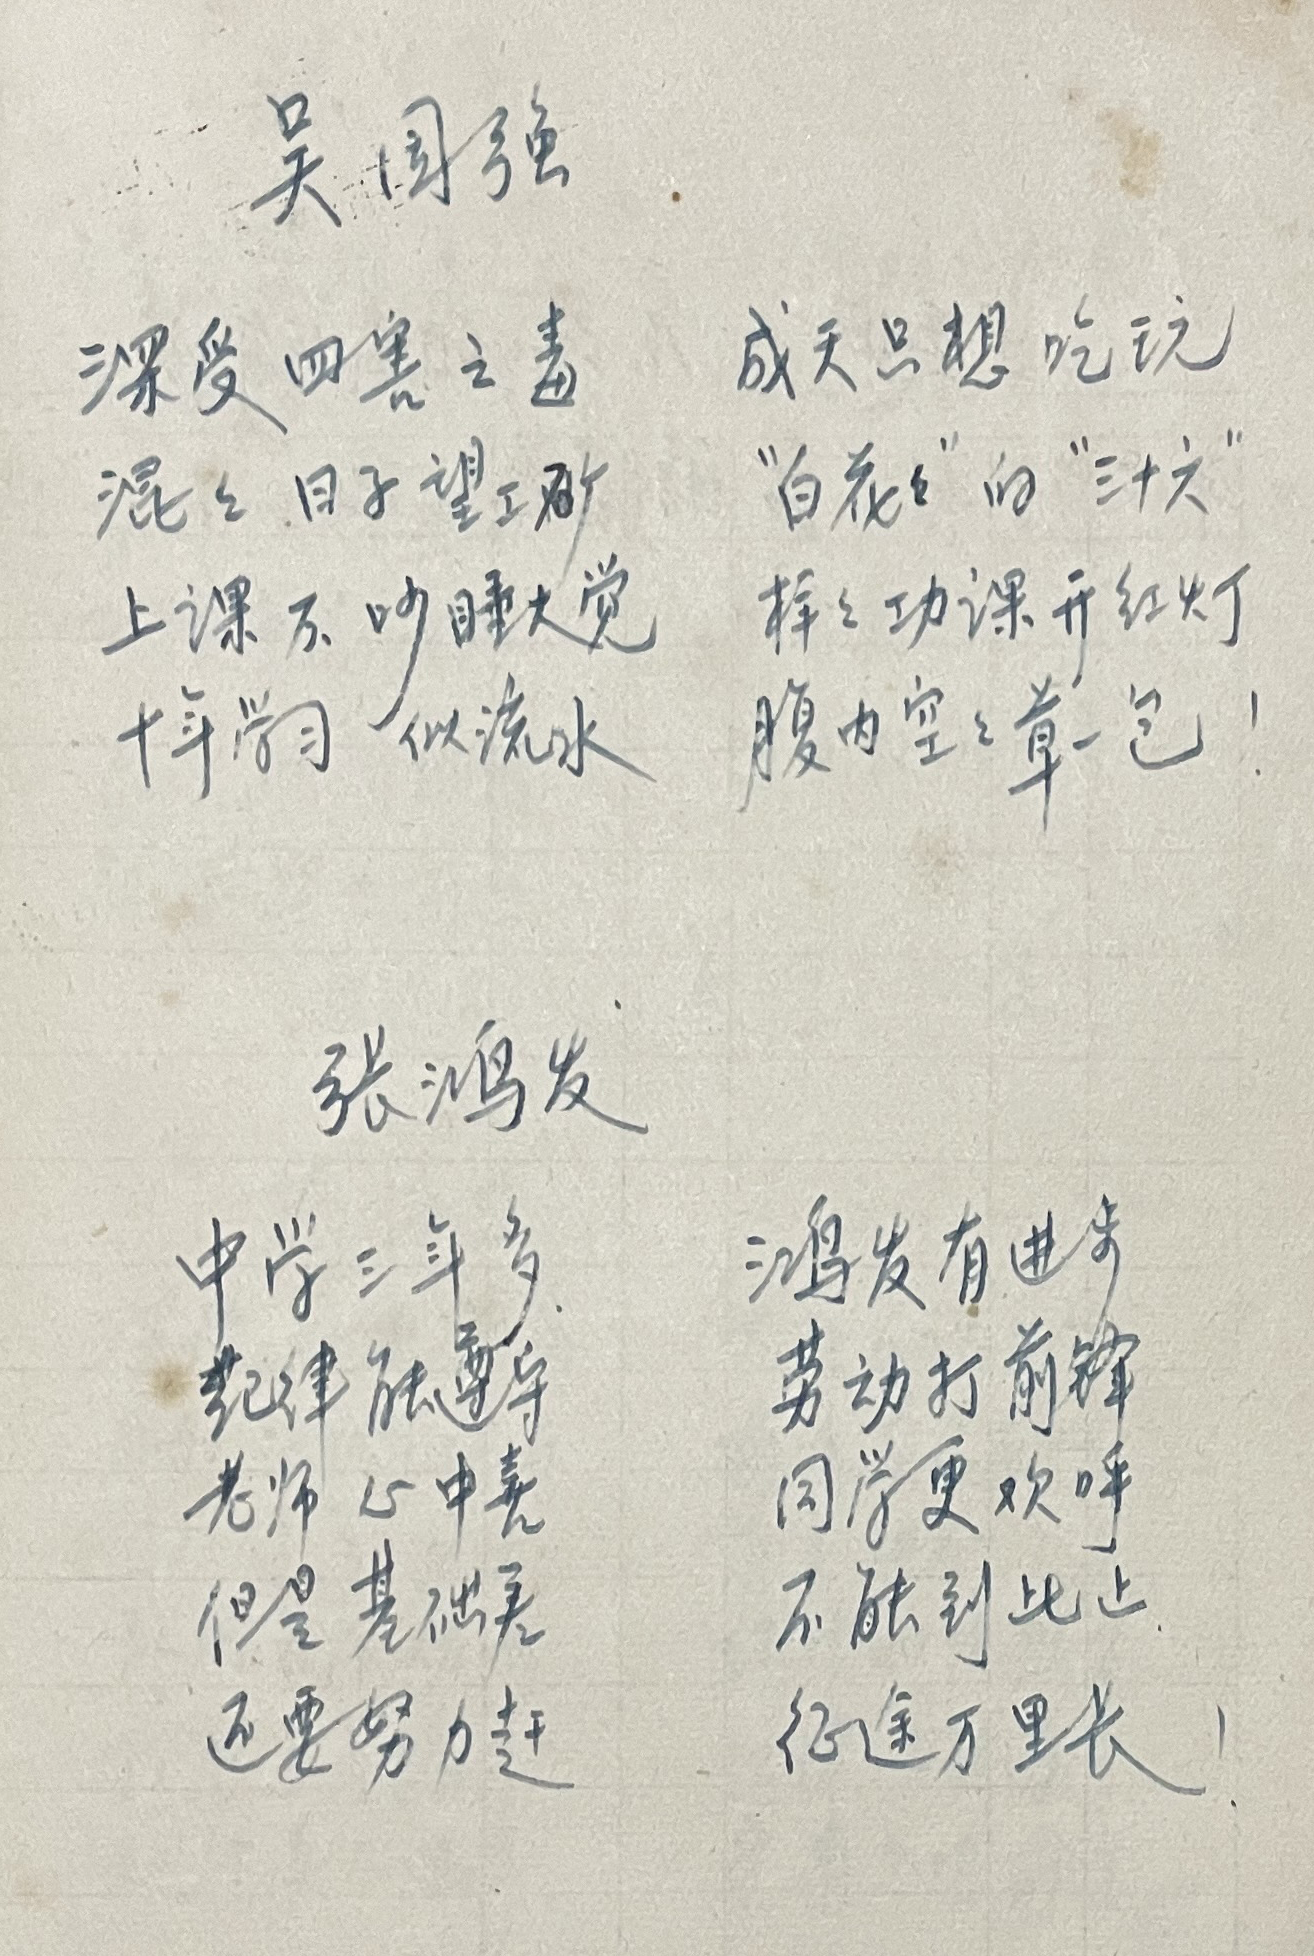 吴国强
深受四害之毒 成天只想吃玩
混々日子望工矿 "白花々"的"三十六"
上课不吵睡大觉 样々功课开红灯
十年学习似流水 腹内空々草一包！
張鸿发
中学三年多 鸿发有进步
纪律能遵守 劳动打前锋
老师心中喜 同学更欢呼
但是基础差 不能到此止
还要努力赶 征途万里长！